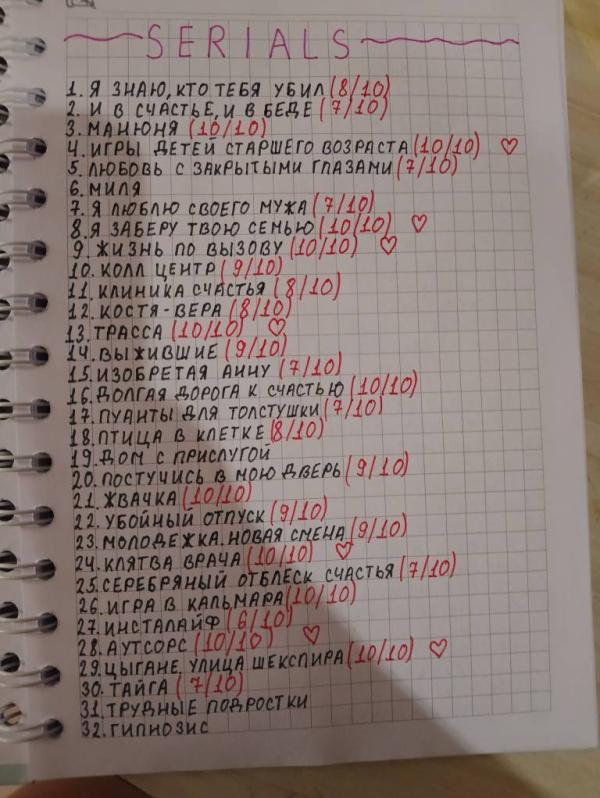 SERIALS
1. Я ЗНАЮ, КТО ТЕБЯ УБИЛ (8/10)
2. И В СЧАСТЬЕ, И В БЕДЕ (7/10)
3. МАНЮНЯ (10/10)
4. ИГРЫ ДЕТЕЙ СТАРШЕГО ВОЗРАСТА (10/10) ♡
5. ЛЮБОВЬ С ЗАКРЫТЫМИ ГЛАЗАМИ (7/10)
6. МИЛЯ
7. Я ЛЮБЛЮ СВОЕГО МУЖА (7/10)
8. Я ЗАБЕРУ ТВОЮ СЕМЬЮ (10/10) ♡
9. ЖИЗНЬ ПО ВЫЗОВУ (10/10) ♡
10. КОЛЛ ЦЕНТР (9/10)
11. КЛИНИКА СЧАСТЬЯ (8/10)
12. КОСТЯ - ВЕРА (8/10)
13. ТРАССА (10/10) ♡
14. ВЫЖИВШИЕ (9/10)
15. ИЗОБРЕТАЯ АННУ (7/10)
16. ДОЛГАЯ ДОРОГА К СЧАСТЬЮ (10/10)
17. ПУАНТЫ ДЛЯ ТОЛСТУШКИ (7/10)
18. ПТИЦА В КЛЕТКЕ (8/10)
19. ДОМ С ПРИСЛУГОЙ
20. ПОСТУЧИСЬ В МОЮ ДВЕРЬ (9/10)
21. ЖВАЧКА (10/10)
22. УБОЙНЫЙ ОТПУСК (9/10)
23. МОЛОДЕЖКА. НОВАЯ СМЕНА (9/10)
24. КЛЯТВА ВРАЧА (10/10) ♡
25. СЕРЕБРЯНЫЙ ОТБЛЕСК СЧАСТЬЯ (7/10)
26. ИГРА В КАЛЬМАРА (10/10)
27. ИНСТАЛАЙФ (6/10)
28. АУТСОРС (10/10) ♡
29. ЦЫГАНЕ. УЛИЦА ШЕКСПИРА (10/10) ♡
30. ТАЙГА (7/10)
31. ТРУДНЫЕ ПОДРОСТКИ
32. ГИПНОЗИС